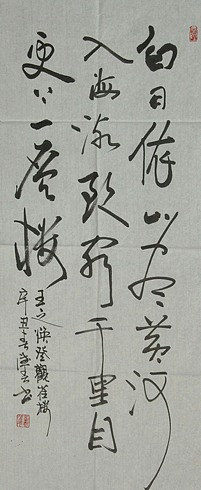 白日依山尽黄河
入海流欲穷千里目
更上一层楼
王之涣登觀雀楼
辛丑春书